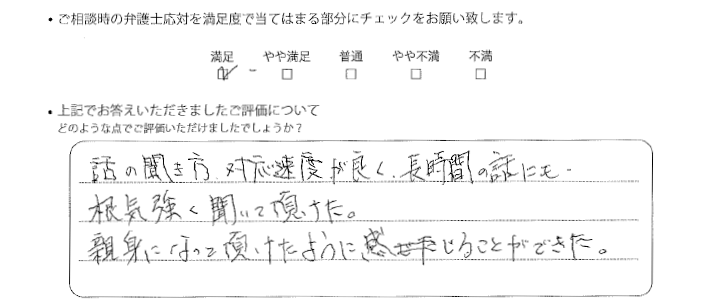 ・ご相談時の弁護士応対を満足度で当てはまる部分にチェックをお願い致します。
満足 やや満足 普通 やや不満 不満
☑ □ □ □ □
・上記でお答えいただきましたご評価について
どのような点でご評価いただけましたでしょうか？
話の聞き方、対応速度が良く、長時間の話にも
根気強く聞いて頂けた。
親身になって頂けたように感じることができた。